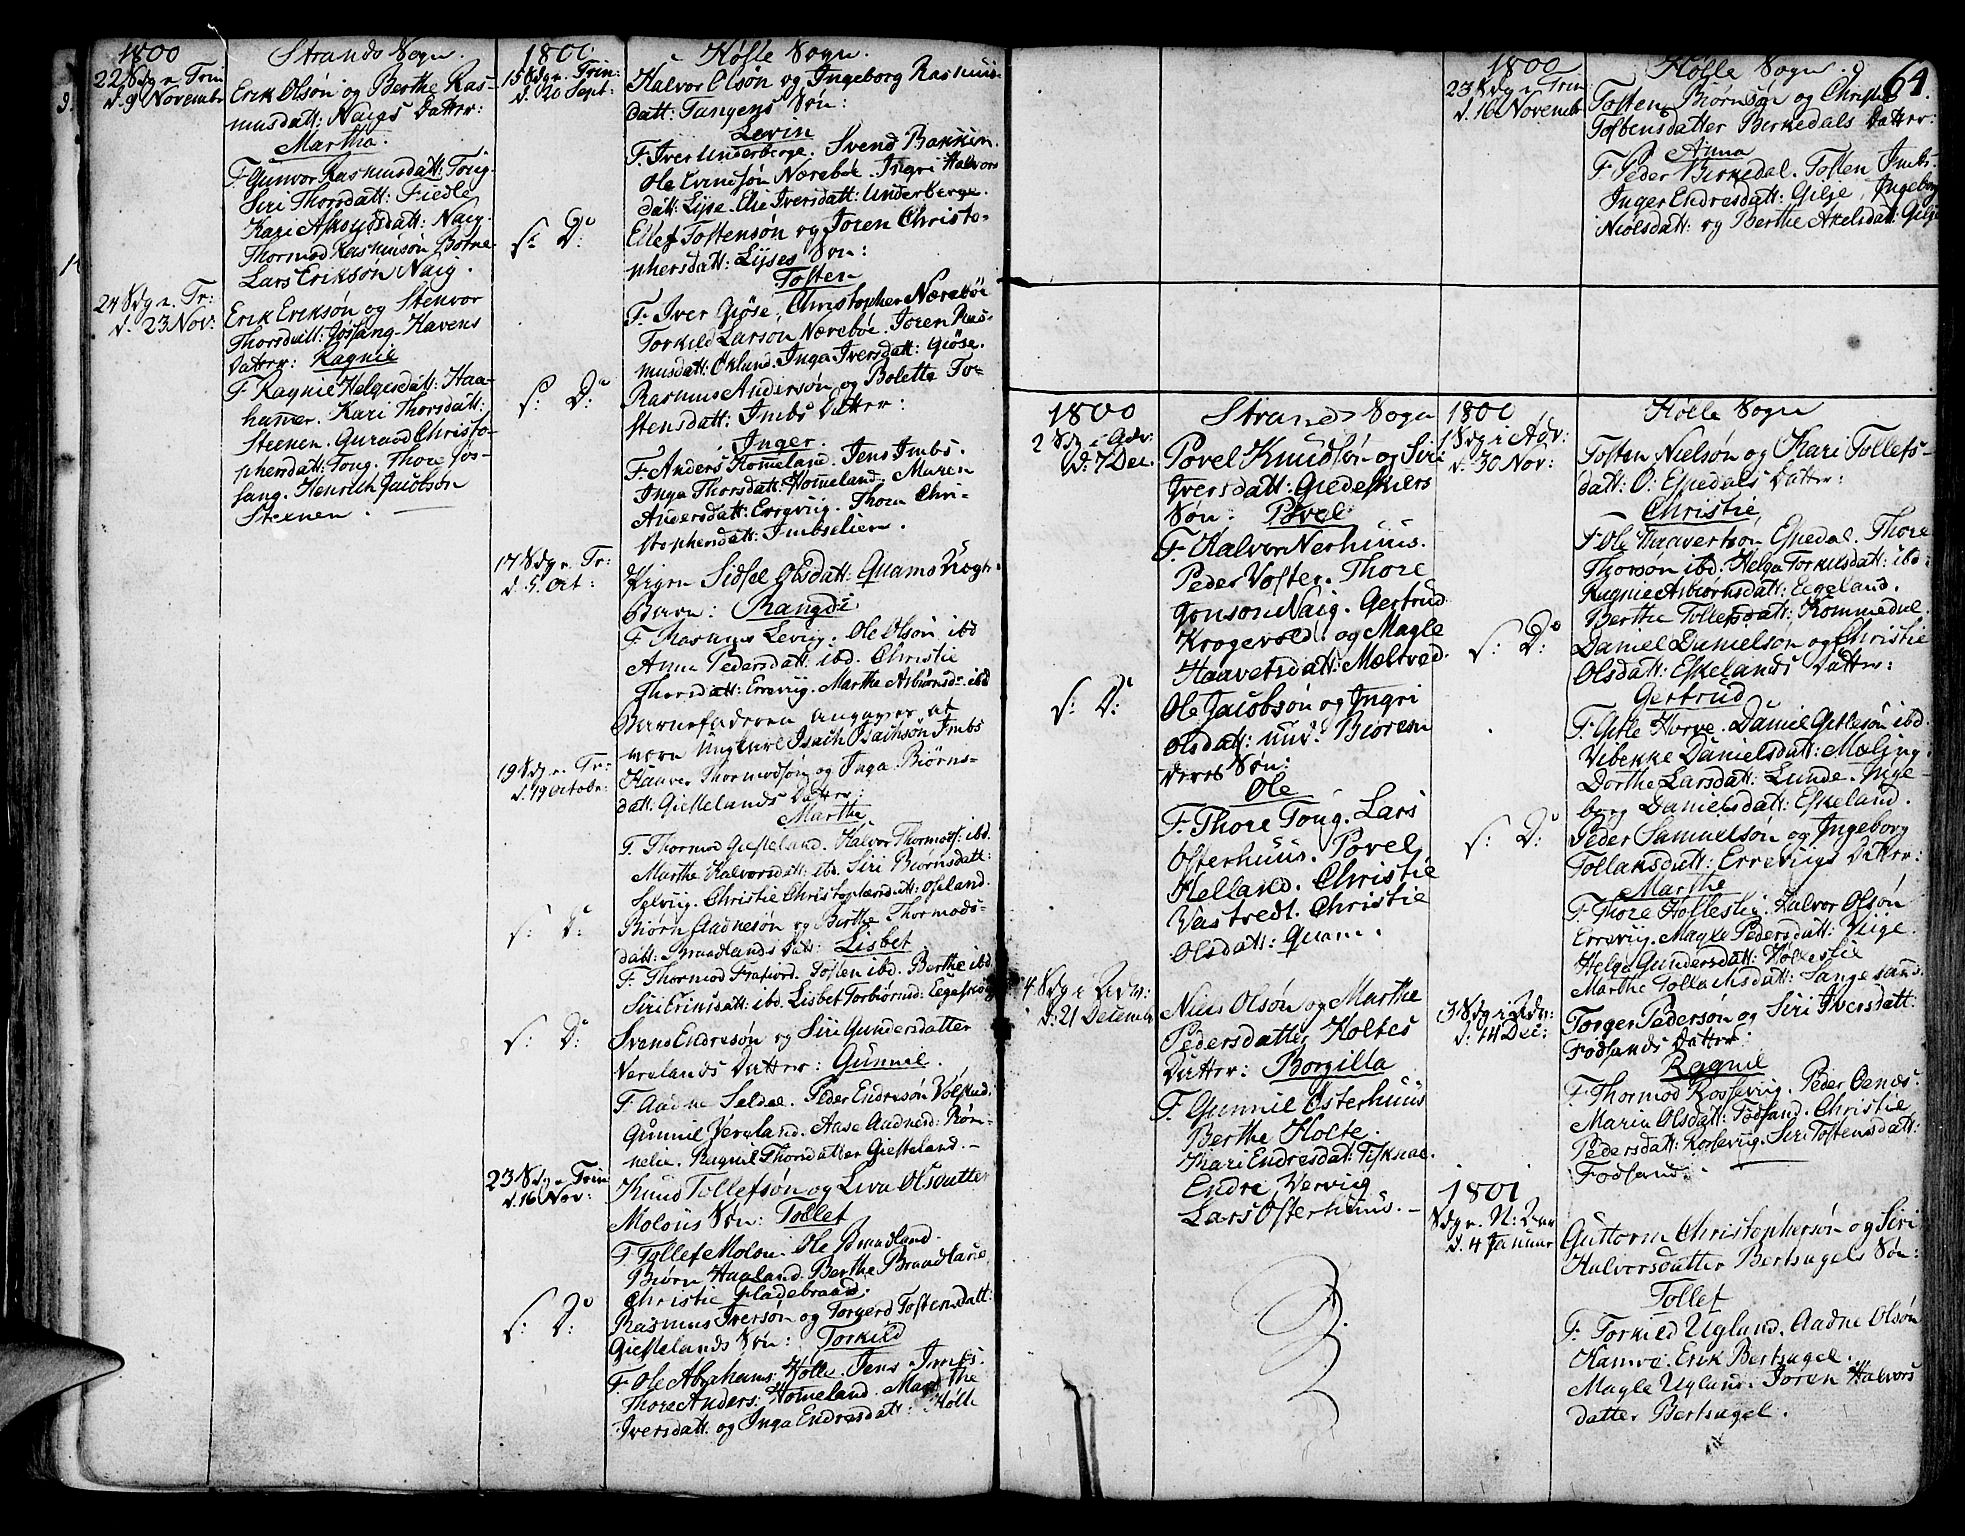 1800
Strands Sogn.
22 Sdg e. Trin
d. 9 Novembr
Erik Olsøn og Berthe Ras-
musdatt: Naigs Datter:
Martha.
F. Gunvor Rasmusdatt: Tong.
Siri Thorsdatt: Fiedle
Kari Asbiørsdatt: Naig.
Thormod Rasmusøn Botne
Lars Eriksøn Naig.
24 Sdg e. Tr:
d. 23 Nov:
Erik Eriksøn og Stenvor
Thorsdatt: Jøssang-Havens
Datter: Ragnie
F. Ragnie Helgesdatt: Haa-
hamer. Kari Thorsdatt:
Steenen. Guraad Christo-
phersdatt: Tong. Thore Jøs-
sang. Henrich Jacobsøn
Steenen.
1800
Høsle Sogn.
15 Sdg e. Trin:
d. 20 Sept:
Halvor Olsøn og Ingeborg Rasmus-
datt: Tangens Søn:
Levin
F. Iver Underberge. Svend Bakken.
Ole Evindsøn Nærebøe. Ingri Halvors
datt: Lyse. Elie Iversdatt: Underberge.
S: D:
Ellef Tostensøn og Joren Christo-
phersdatt: Lyses Søn:
Tosten
F. Iver Giøse, Christopher Nærebøe
Torkild Larsøn Nærebøe. Joren Ras-
musdatt: Øklund. Inga Iversdatt: Giøse.
S: D:
Rasmus Andersøn og Bolette To-
stensdatt: Imbs Datter:
Inger.
F. Anders Homeland. Jens Imbs.
Inga Thorsdatt: Homeland. Maren
Andersdatt: Errevig. Thora Chri-
stophersdatt: Imbselien.
17 Sdg e. Tr:
d. 5 Oct:
Pigen Sidsel Olsdatt: Quams Uægte
Barn: Rangdi
F. Rasmus Levig. Ole Olsøn ibd
Anne Pedersdatt: ibd. Christie
Thorsdatt: Errevig. Marthe Asbiørnsd: ibd
Barnefaderen angaves at
være Ungkarl Isach Isachsøn Imbs
19 Sdg e. Tr:
d. 19 Octobr:
Haaver Thormodsøn og Inga Biørns-
datt: Giesselands Datter:
Marthe
F. Thormod Giesseland. Halvor Thormods: ibd.
Marthe Halvorsdatt: ibd. Siri Biørnsdatt:
Selvig. Christie Christophersdatt: Oseland.
S: D:
Biørn Aadnesøn og Berthe Thormods-
datt: Braadlands Datt: Lisbet
F. Thormod Frafiord. Tosten ibd. Berthe ibd.
Siri Erinsdatt: ibd. Lisbet Torbiørnsd: Egeskog
S: D:
Svend Endresøn og Siri Gundersdatter
Verelands Datter: Gunnil.
F. Aadne Seldal. Peder Endresøn Vølstad.
Gunnil Vereland. Aase Aadnesd: Røn-
nelie. Ragnil Thorsdatter Giesseland.
23 Sdg e. Trin
d. 16 Nov:
Knud Tollefsøn og Liva Olsdatter
Moløus Søn: Tollef
F. Tollef Moløu. Ole Braadland.
Biørn Haaland. Berthe Braadland
Christie Fladebraad.
S: D:
Rasmus Iversøn og Torgerd Tostensdatt:
Giesselands Søn: Torkild
F. Ole Abrahams: Hølle. Jens Imbs.
Thore Anders: Homeland. Marthe
Iversdatt: og Inga Endresdatt: Hølle
1800
Hølle Sogn.
64
23 Sdg e. Trin
d. 16 Novembr
Tosten Biørnsøn og Christie
Tostensdatter Birkedals Datter:
Anna
F. Peder Birkedal. Tosten Imbs.
Inger Endresdatt: Gilje. Ingeborg
Nielsdatt: og Berthe Axelsdatt: Gilje
1800
Strands Sogn
2 Sdg i Adv:
d: 7 Dec.
Povel Knudsøn og Siri
Iversdatt: Giedeskiers
Søn: Povel
F. Halvor Nerhuus.
Peder Voster. Thore
Jonson Naig. Gertrud
Krogevold: og Magle
Haavetsdatt: Mæltved.
S: D:
Ole Jacobsøn og Ingri
Olsdatt: und: Biøren
dvers Søn:
Ole
F. Thore Tong. Lars
Osterhuus. Povel
Helland. Christie
Vastvedt. Christie
Olsdatt: Quam.
4 Sdg i Adv:
d: 21 Decemb
Niels Olsøn og Marthe
Pedersdatter Holtes
Datter: Borgilla
F. Gunnil Osterhuus
Berthe Holte.
Kari Endresdat: Fiskaae.
Endre Vervig
Lars Osterhuus.
1800
Hølle Sogn
1 Sdg i Adv:
d. 30 Nov:
Tosten Nielsøn og Kari Tollefs-
datt: O: Espedals Datter:
Christie
F. Ole Thaavertson Espedal. Thore
Thorson ibd. Helga Torkilsdatt: ibd.
Ragnie Asbiørnsdatt: Eegeland.
Berthe Tollefsdatt: Kommedal.
S: D:
Daniel Danielson og Christie
Olsdatt: Eskelands Datter:
Gertrud
F. Gitle Horve. Daniel Gitlesøn ibd.
Vibekke Danielsdatt: Maljng.
Dorthe Larsdatt: Lunde. Inge-
borg Danielsdatt: Eskeland.
S: D:
Peder Samuelsøn og Ingeborg
Tollaksdatt: Errevigs Datter:
Marthe
F. Thore Hollesli. Halvor Olsøn
Errevig. Magle Pedersdatt: Viige.
Helga Gundersdatt: Hollestie
Marthe Tollachsdatt: Sangesand.
3 Sdg i Adv:
d: 14 Dec:
Torger Pedersøn og Siri Iversdatt:
Fodsands Datter
Ragnil
F. Thormod Rossevig. Peder Oenæs.
Maria Olsdatt: Fodsand. Christie
Pedersdatt: Rossevig. Siri Tostensdatt:
Fodsand.
1801
Sdg e. N: Aar
d. 4 Januar
Guttorm Christophersøn og Siri
Halversdatter Bertsagels Søn:
Tollef
F. Torkild Ugland. Aadne Olsøn
Hamre. Erik Bertsagel.
Magle Ugland. Joren Halvors
datter Bertsagel.